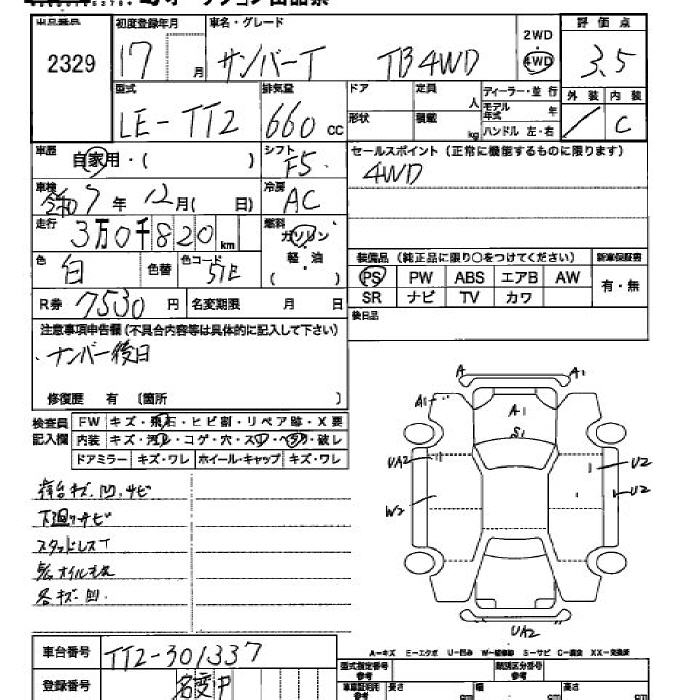 出品番号 初度登録年月 車名・グレード 2WD 評価点
2329 17 月 サンバーT TB4WD 4WD 3.5
型式 排気量 ドア 定員 人 ディーラー・並行 外装 内装
LE-TT2 660 cc 形状 積載 kg モデル年式 年 / C
ハンドル 左・右
車歴 自家用・( ) シフト F5 セールスポイント(正常に機能するものに限ります)
車検 令和7年12月( 日) 冷房 AC 4WD
走行 3万0千820km 燃料 ガソリン
軽・油
( )
色 白 色替 色コード 51E 装備品(純正品に限り○をつけてください) 新車保証書
PS PW ABS エアB AW 有・無
R券 7530円 名変期限 月 日 SR ナビ TV カワ
後日品
注意事項申告欄(不具合内容等は具体的に記入して下さい)
・ナンバー後日
修復歴 有 〔箇所 〕
検査員 FW キズ・飛石・ヒビ割・リペア跡・X要
記入欄 内装 キズ・汚レ・コゲ・穴・スレ・ヘタリ・破レ
ドアミラー キズ・ワレ ホイール・キャップ キズ・ワレ
荷台キズ.凹.サビ
下廻りサビ
スタッドレスT
各キズ.凹.
A A1
A1 A1
S1
UA2 U2
W2 U2
UA2
A-キズ E-エクボ U-凹み W-補修跡 S-サビ C-腐食 XX-交換済
車台番号 TT2-301337 型式指定番号 参考 類別区分番号 参考
登録番号 名変P 車庫証明用 参考 長さ cm 幅 cm 高さ cm